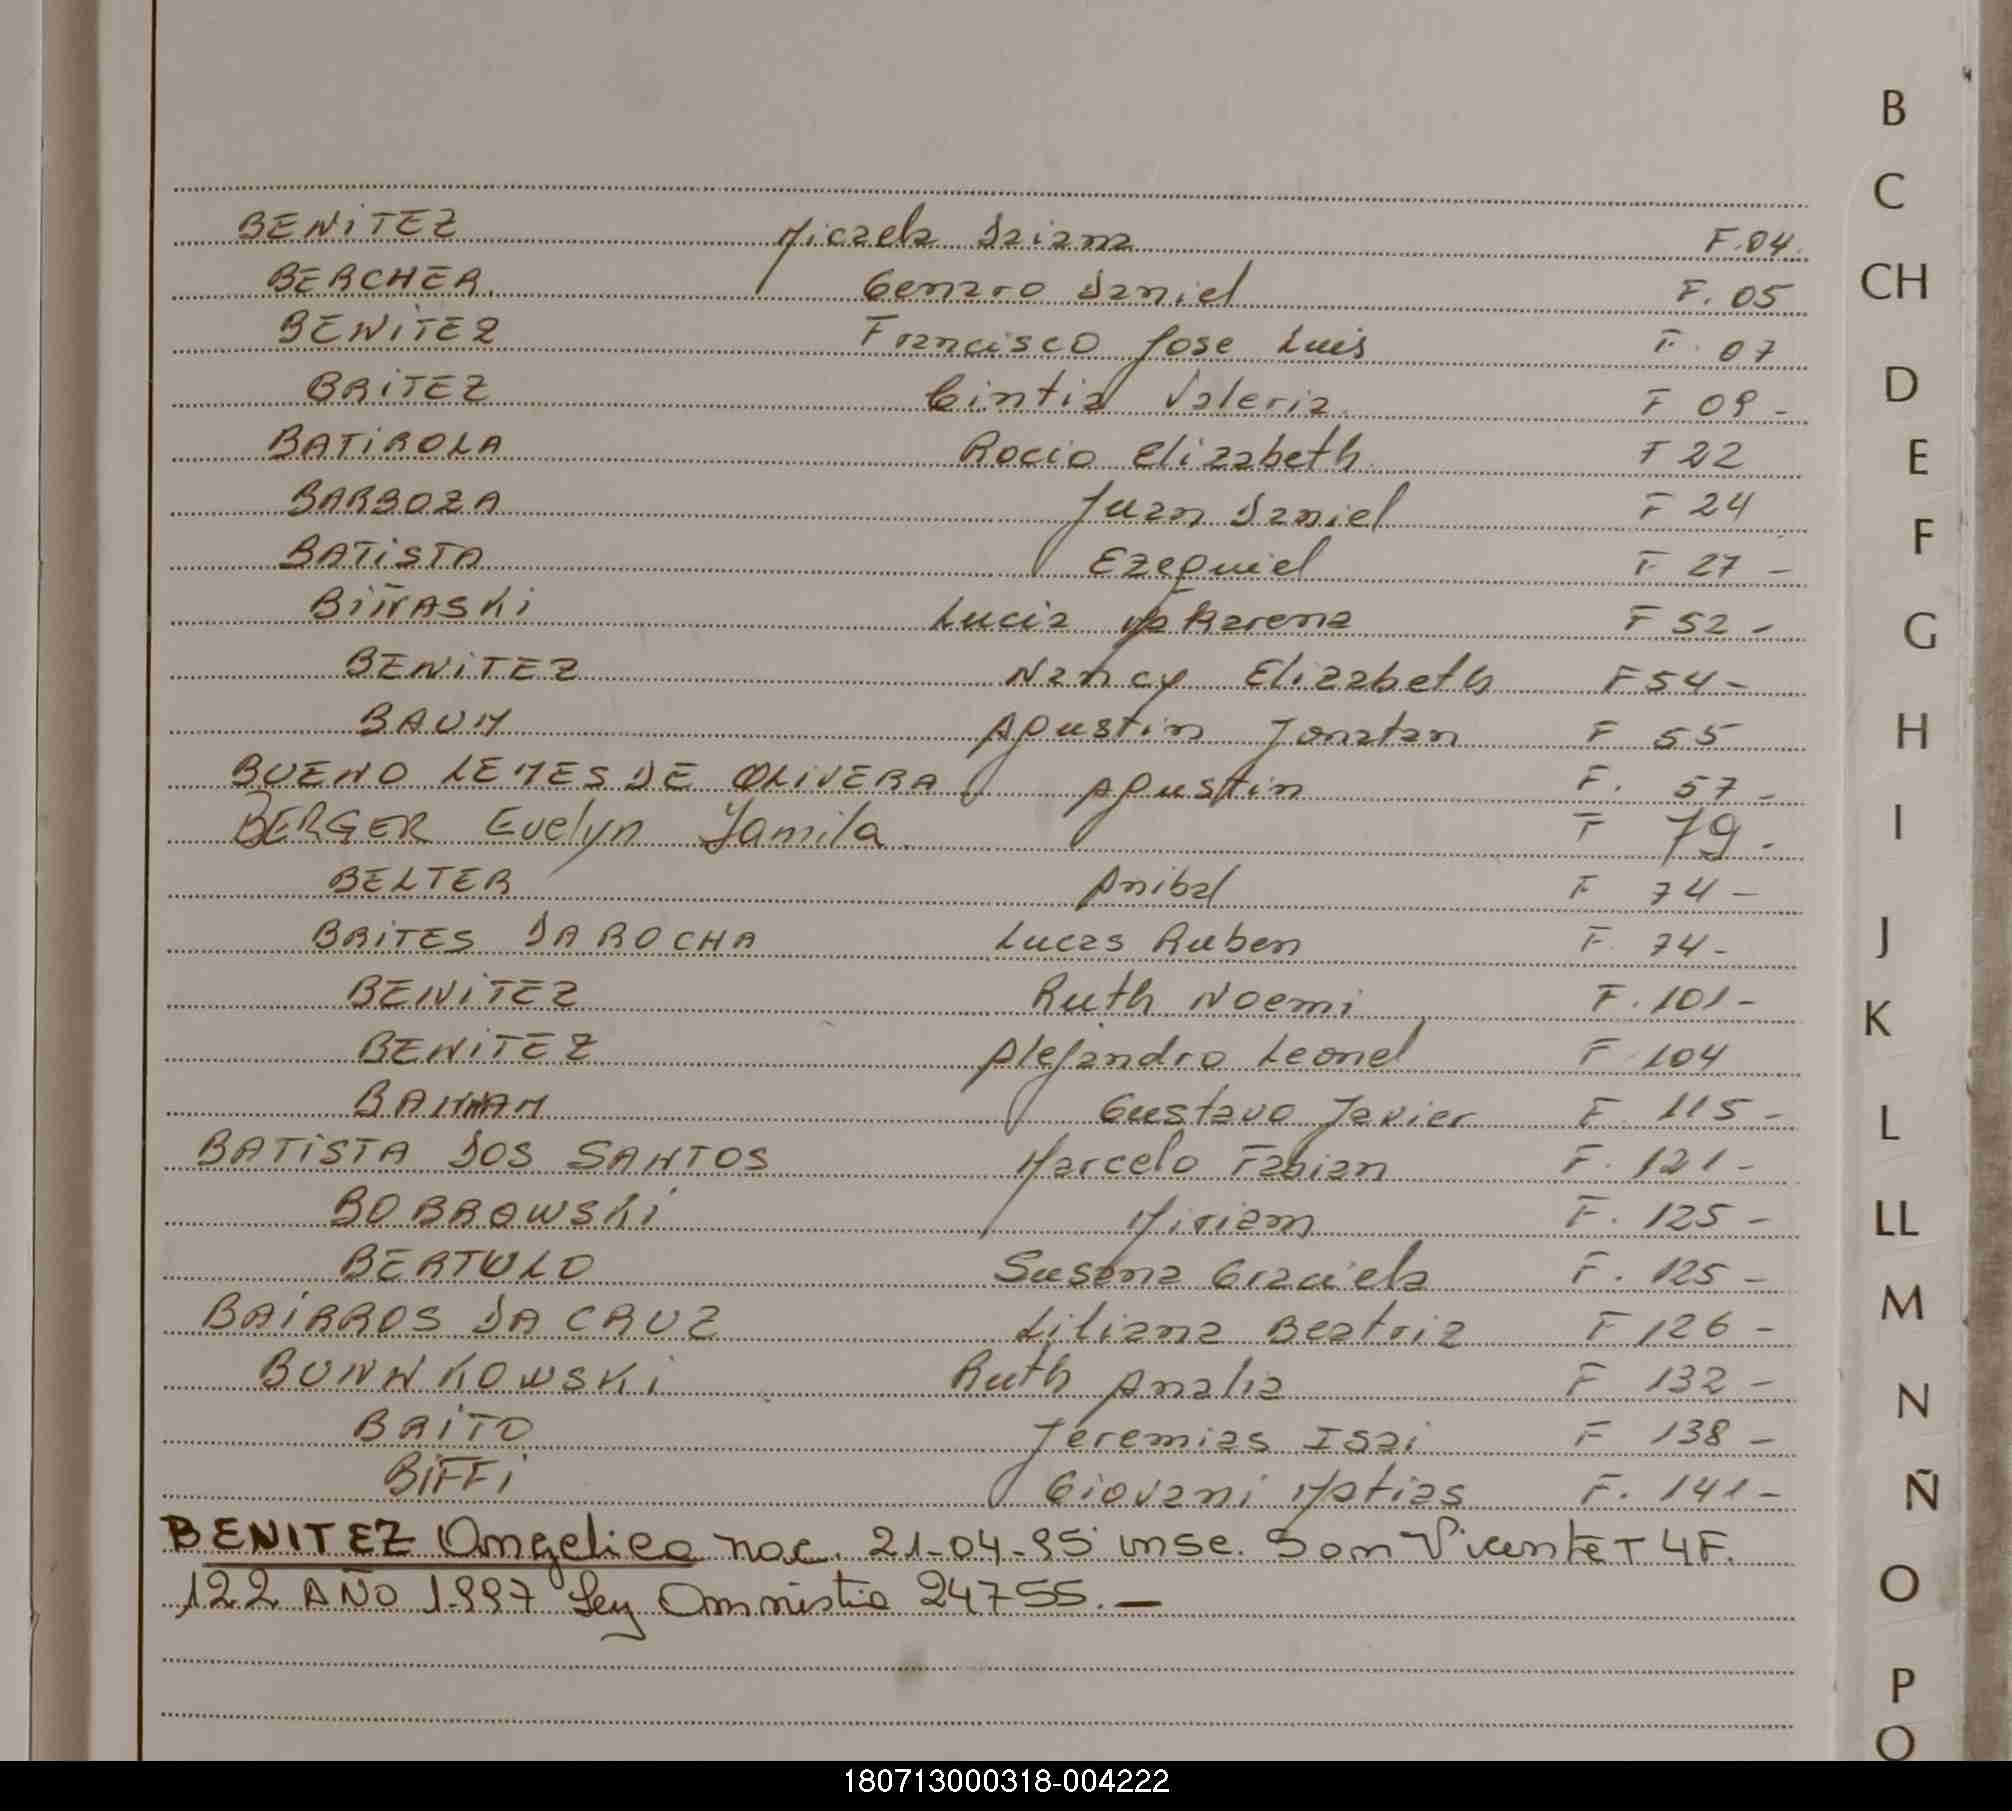 BENITEZ Micaela Daiana F.04.
BERCHER. Genaro Daniel F. 05
BENITEZ Francisco Jose Luis F. 07
BRITEZ Cintia Valeria. F 09-
BATIROLA Rocio Elizabeth. F 22
BARBOZA Juan Daniel F 24
BATISTA Ezequiel F 27 -
BIÑASKI Lucia Makarena F 52 -
BENITEZ Nancy Elizabeth F 54-
BAUM Agustin Jonatan F 55
BUENO LEMES DE OLIVERA Agustin F. 57-
BERGER Evelyn Yamila. F 79.
BELTER Anibal F 74-
BRITES DA ROCHA Lucas Ruben F. 74-
BENITEZ Ruth Noemi F. 101-
BENITEZ Alejandro Leonel F 104
Gustavo Javier F. 115-
BATISTA DOS SANTOS Marcelo Fabian F. 121-
BOBROWSKI Miriam F. 125-
BERTULO Susana Graciela F. 125-
BAIRROS DA CRUZ Liliana Beatriz F 126-
Ruth Analia F 132-
BRITO Jeremias Isai F 138-
BIFFI Giovani Matias F. 141-
BENITEZ Angelica nac. 21-04-95 insc. San Vicente T 4F.
122 AÑO 1.997 Ley Amnistia 24755.-
B
C
CH
D
E
F
G
H
I
J
K
L
LL
M
N
Ñ
O
P
180713000318-004222